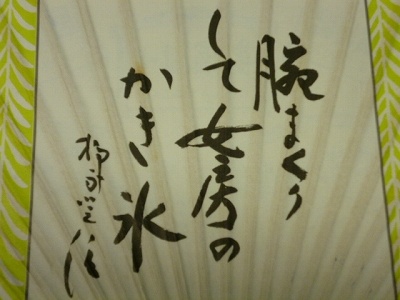 腕まくり
して女房の
かき氷